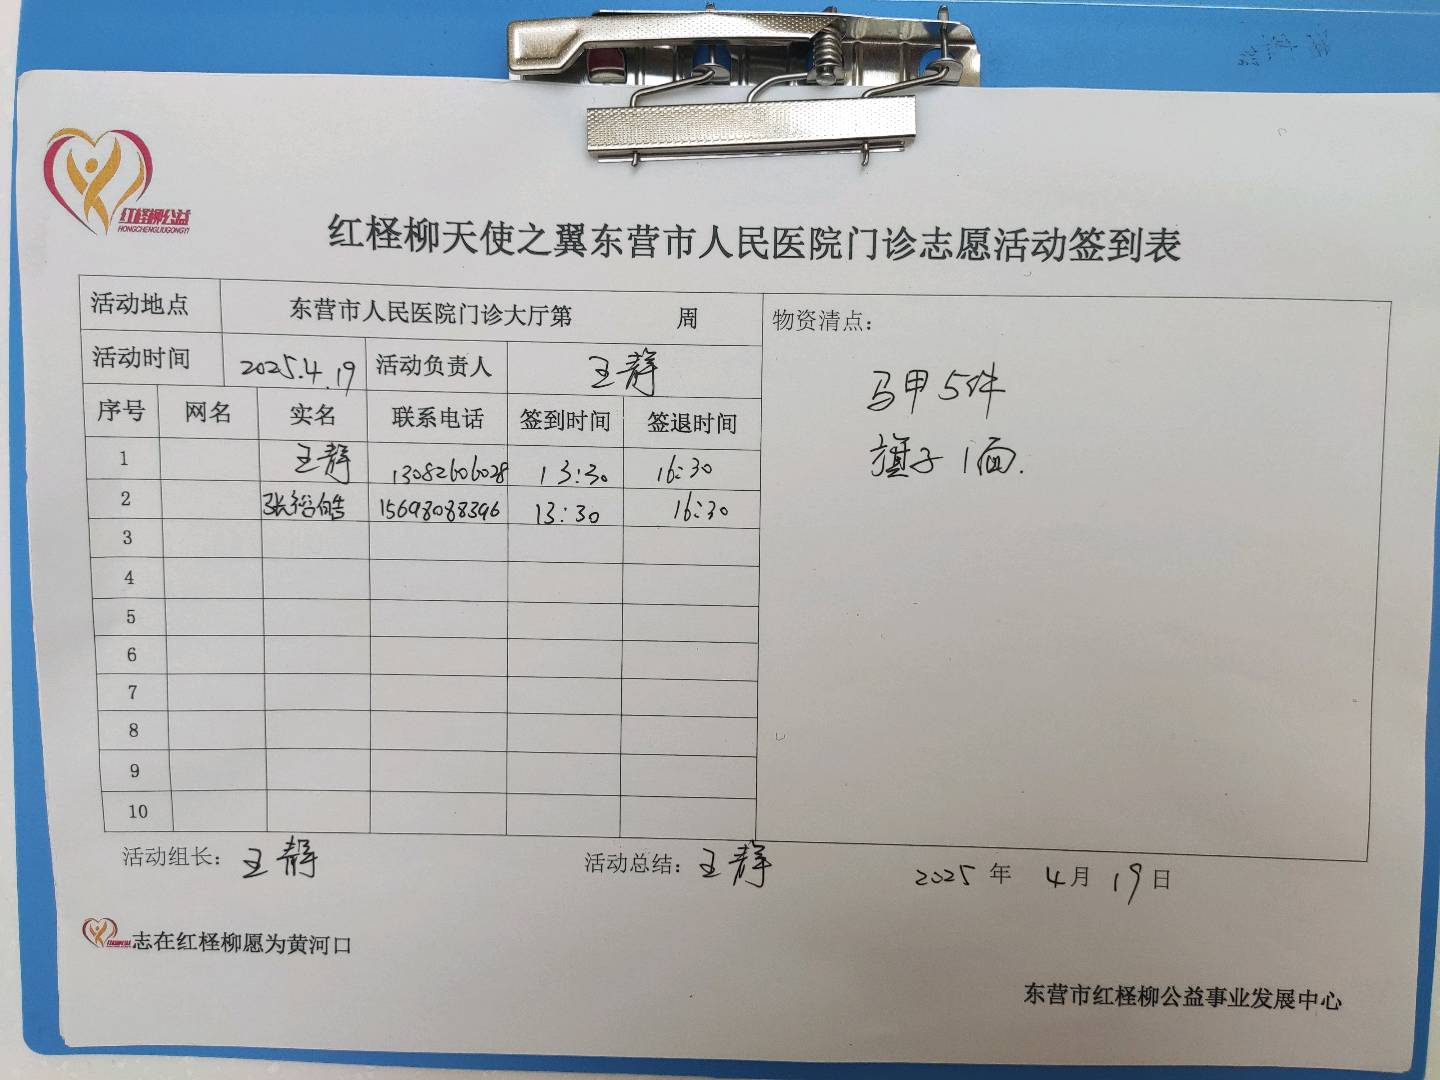 红柽柳公益
HONGCHENGLIUGONGYI
红柽柳天使之翼东营市人民医院门诊志愿活动签到表
活动地点 东营市人民医院门诊大厅第 周
活动时间 2025.4.19 活动负责人 王静
序号 网名 实名 联系电话 签到时间 签退时间
1 王静 13082606028 13:30 16:30
2 张裕皓 15698088396 13:30 16:30
3
4
5
6
7
8
9
10
物资清点：
马甲5件
旗子1面.
活动组长：王静 活动总结：王静 2025年4月19日
志在红柽柳愿为黄河口
东营市红柽柳公益事业发展中心